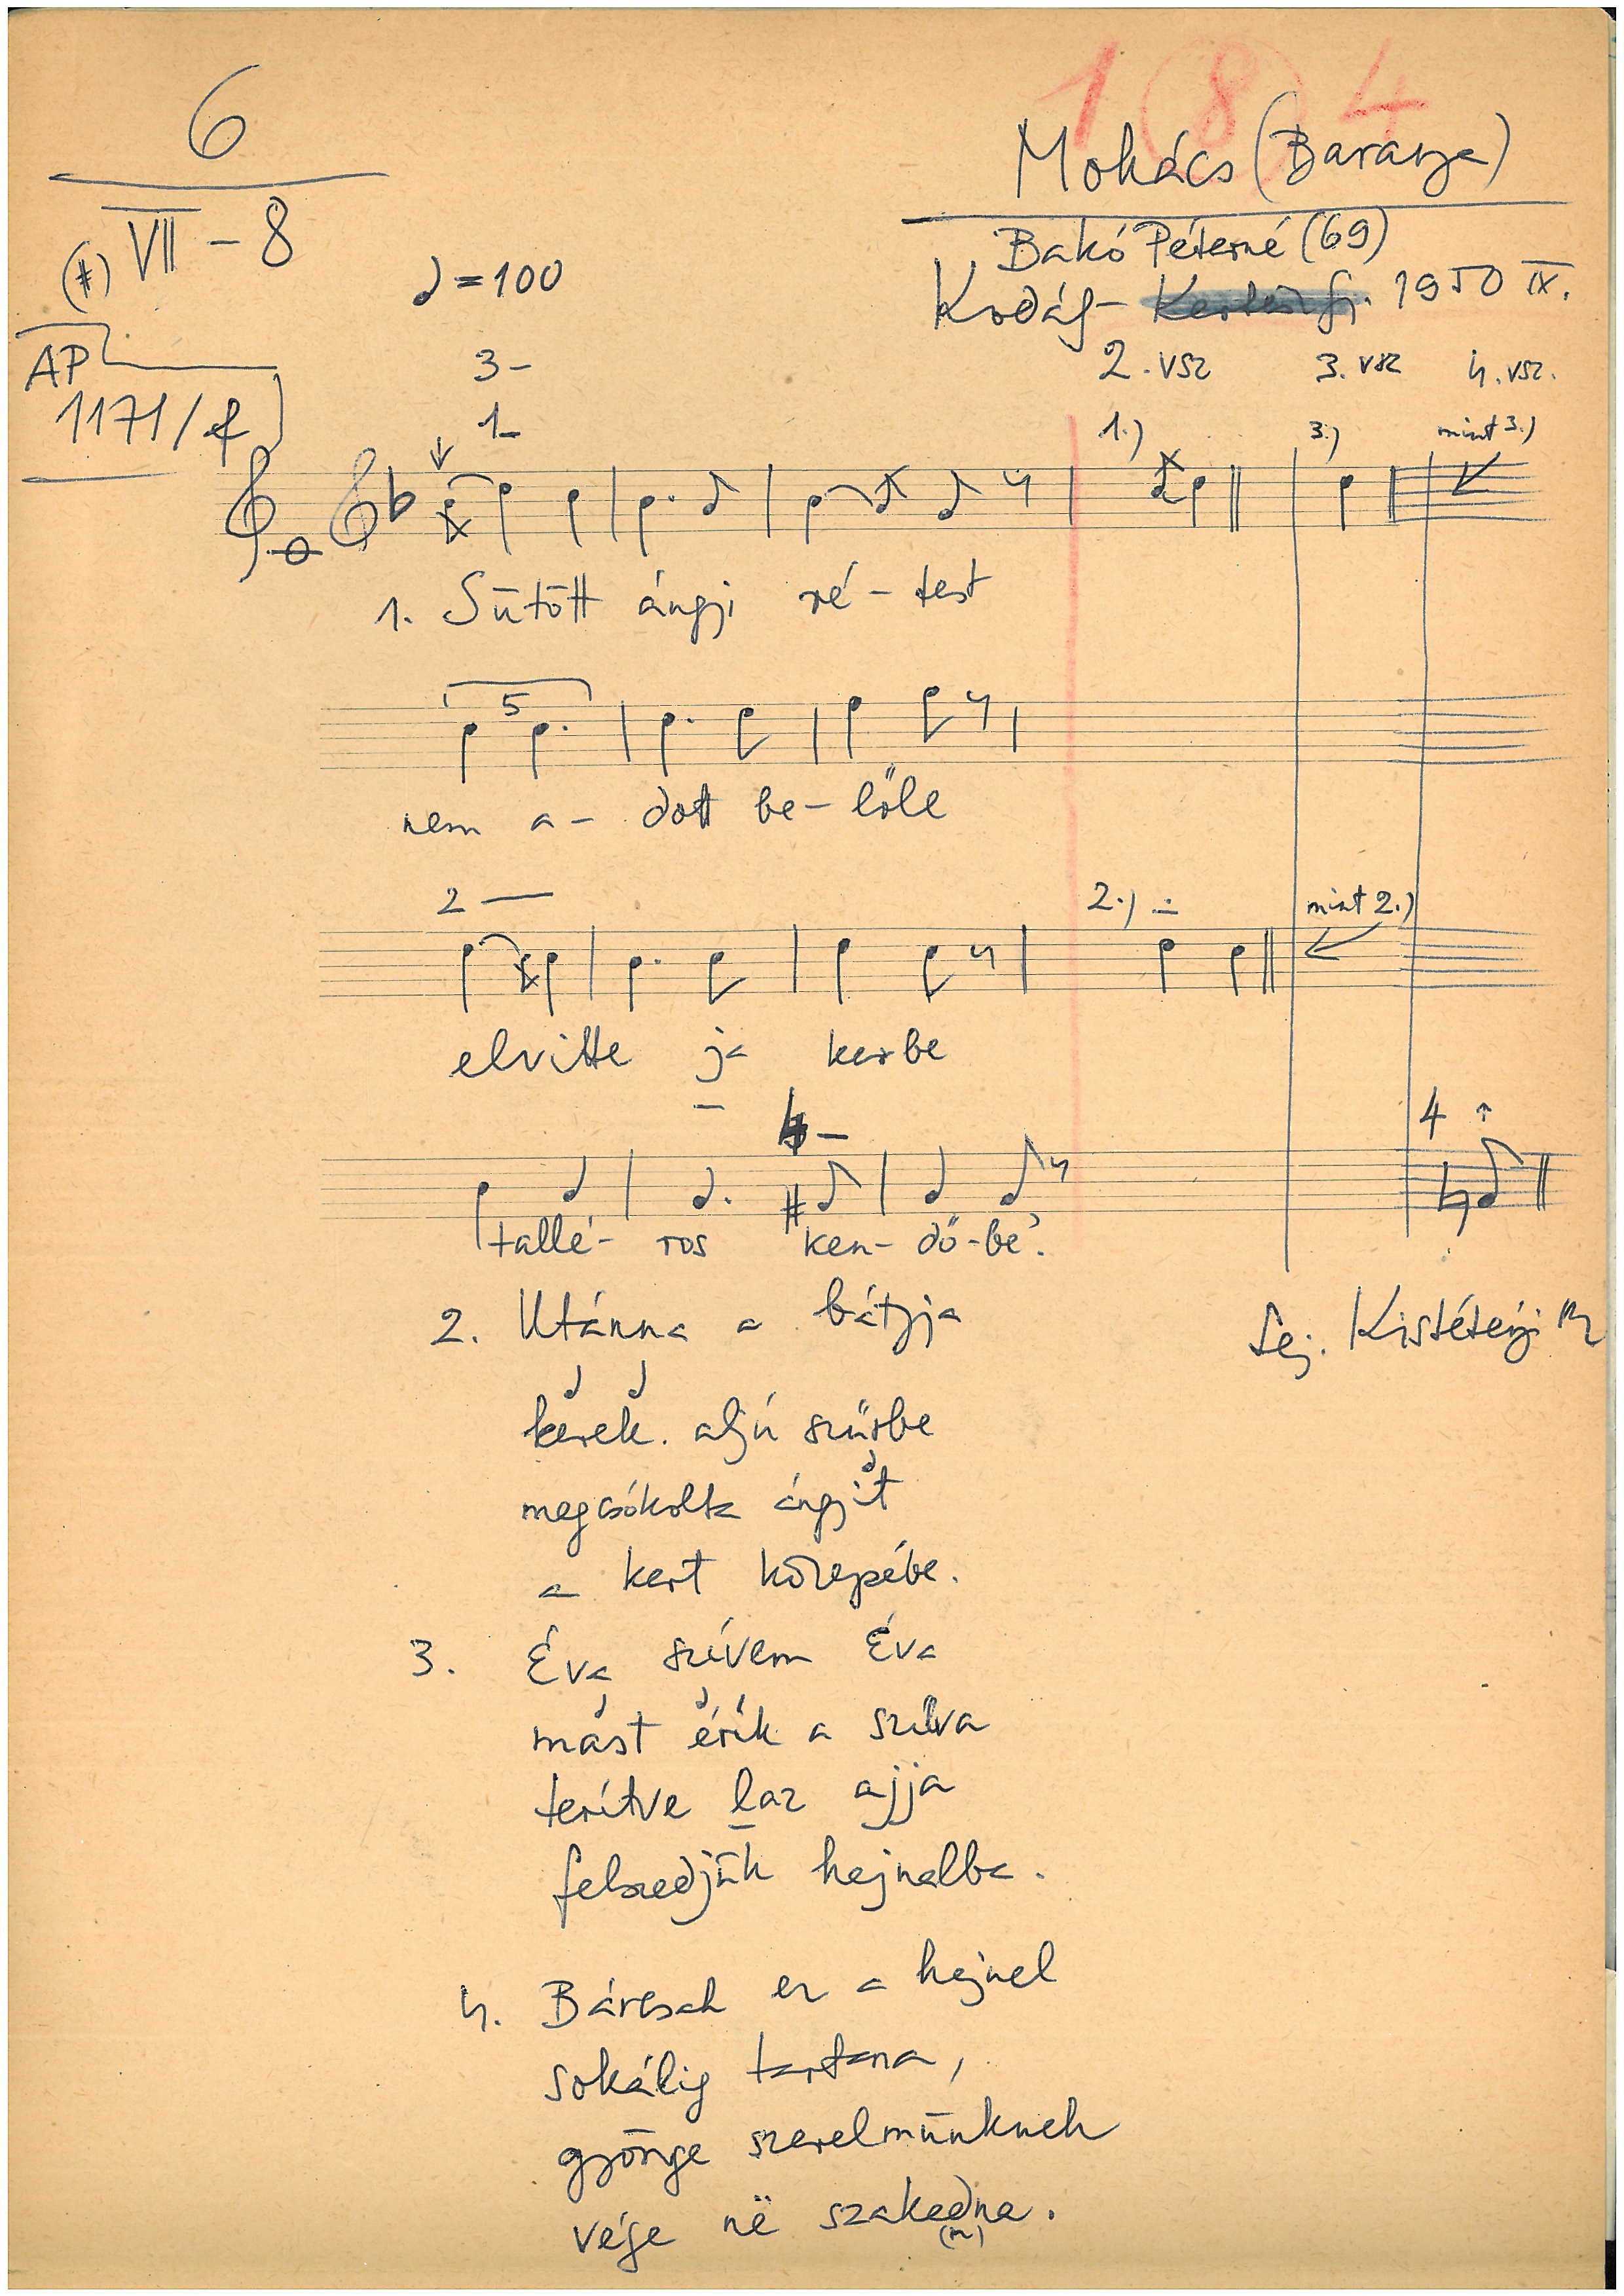 184
6
Mohács (Baranya)
VII - 8
Bakó Péterné (69)
(#)
♩=100
Kodály - 1950 IX.
AP
1171/f
3-
2. vsz 3. vsz 4. vsz.
1-
1.) 3.) mint 3.)
1. Sütött ángyi ré-test
5
nem a- dott be- lőle
2 —
2.) mint 2.)
elvitte ja kerbe
4
tallé- ros ken- dő-be.
2. Utánna a bátyja
kerek aljú szűrbe
megcsókolta ángyit
a kert közepébe.
Lej. Kistétényi
3. Éva szívem Éva
mást érik a szilva
terítve laz ajja
felszedjük hajnalba.
4. Bárcsak ez a hajnal
sokálig tartana,
gyönge szerelmünknek
vége në szakadna.